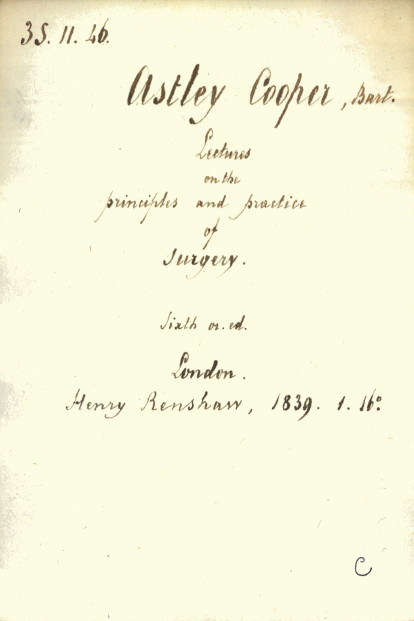 35. 11. 46.
Astley Cooper, Bart.
Lectures
on the
principles and practice
of
Surgery.
Sixth or. ed.
London.
Henry Renshaw, 1839. 1. 16°.
C